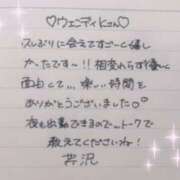 ♡ウェンディドさん♡
久しぶりに会えてすご〜く嬉し
かったです〜!!相変わらず優〜
面白くて…、楽しい時間を
ありがとうございました○°
夜も出勤できるので…トークで
教えてくださいね!
芹沢